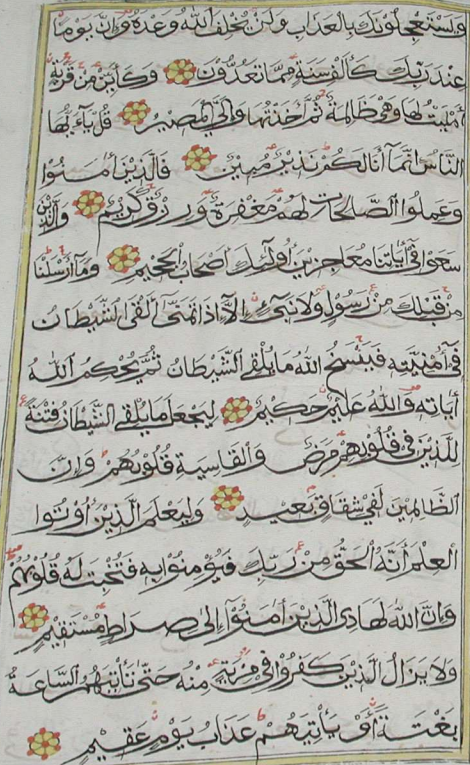 وَيَسْتَعْجِلُونَكَ بِالْعَذَابِ وَلَنْ يُخْلِفَ اللّٰهُ وَعْدَهُ وَإِنَّ يَوْمًا
عِنْدَ رَبِّكَ كَأَلْفِ سَنَةٍ مِمَّا تَعُدُّونَ وَكَأَيِّنْ مِنْ قَرْيَةٍ
أَمْلَيْتُ لَهَا وَهِيَ ظَالِمَةٌ ثُمَّ أَخَذْتُهَا وَإِلَيَّ الْمَصِيرُ قُلْ يَا أَيُّهَا
النَّاسُ إِنَّمَا أَنَا لَكُمْ نَذِيرٌ مُبِينٌ فَالَّذِينَ آمَنُوا
وَعَمِلُوا الصَّالِحَاتِ لَهُمْ مَغْفِرَةٌ وَرِزْقٌ كَرِيمٌ وَالَّذِينَ
سَعَوْا فِي آيَاتِنَا مُعَاجِزِينَ أُولَئِكَ أَصْحَابُ الْجَحِيمِ وَمَا أَرْسَلْنَا
مِنْ قَبْلِكَ مِنْ رَسُولٍ وَلَا نَبِيٍّ إِلَّا إِذَا تَمَنَّى أَلْقَى الشَّيْطَانُ
فِي أُمْنِيَّتِهِ فَيَنْسَخُ اللّٰهُ مَا يُلْقِي الشَّيْطَانُ ثُمَّ يُحْكِمُ اللّٰهُ
آيَاتِهِ وَاللّٰهُ عَلِيمٌ حَكِيمٌ لِيَجْعَلَ مَا يُلْقِي الشَّيْطَانُ فِتْنَةً
لِلَّذِينَ فِي قُلُوبِهِمْ مَرَضٌ وَالْقَاسِيَةِ قُلُوبُهُمْ وَإِنَّ
الظَّالِمِينَ لَفِي شِقَاقٍ بَعِيدٍ وَلِيَعْلَمَ الَّذِينَ أُوتُوا
الْعِلْمَ أَنَّهُ الْحَقُّ مِنْ رَبِّكَ فَيُؤْمِنُوا بِهِ فَتُخْبِتَ لَهُ قُلُوبُهُمْ
وَإِنَّ اللّٰهَ لَهَادِي الَّذِينَ آمَنُوا إِلَى صِرَاطٍ مُسْتَقِيمٍ
وَلَا يَزَالُ الَّذِينَ كَفَرُوا فِي مِرْيَةٍ مِنْهُ حَتَّى تَأْتِيَهُمُ السَّاعَةُ
بَغْتَةً أَوْ يَأْتِيَهُمْ عَذَابُ يَوْمٍ عَقِيمٍ